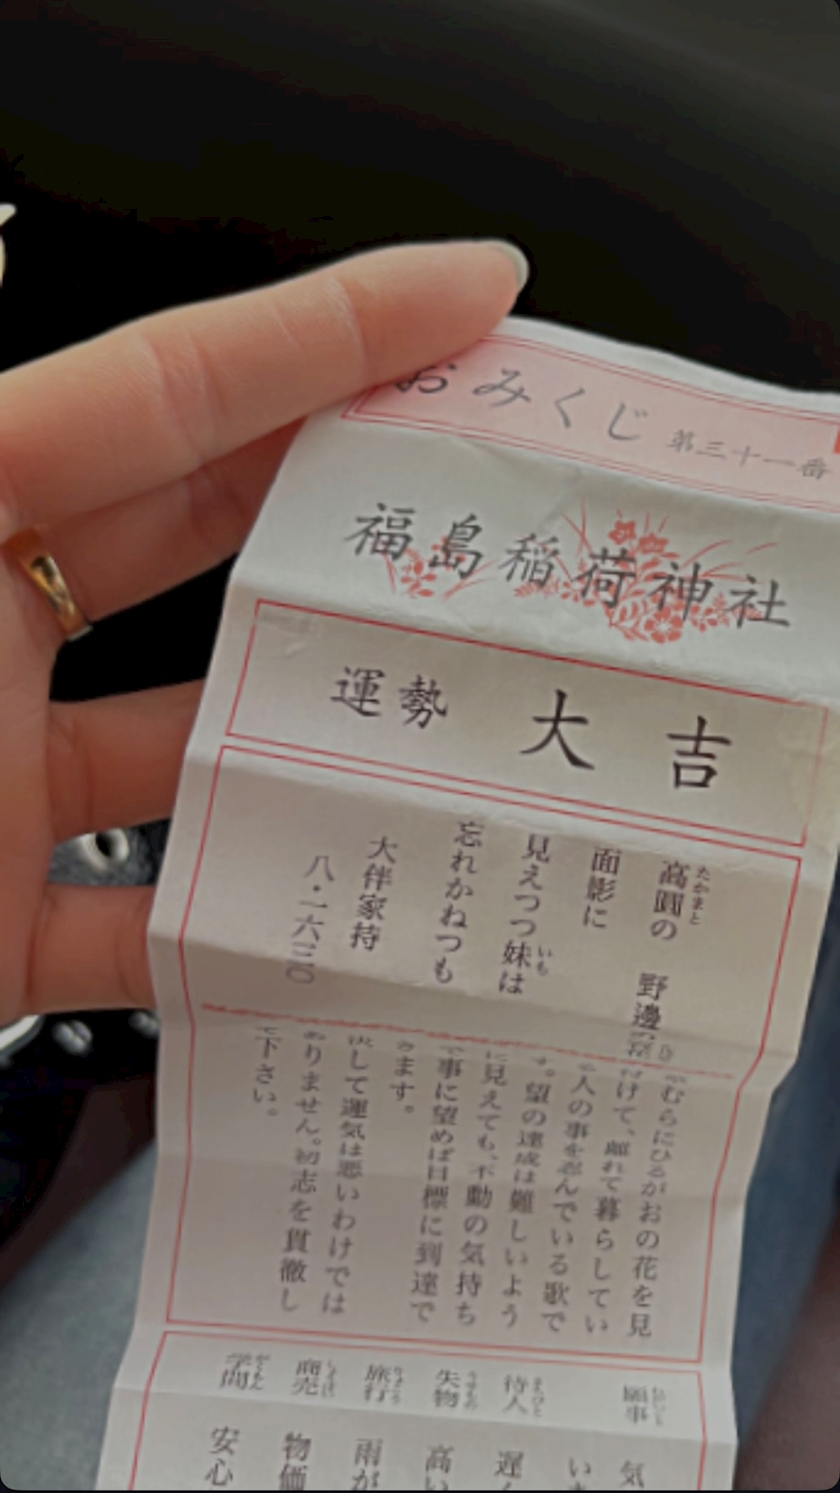 おみくじ 第三十一番
福島稲荷神社
運勢 大吉
高圓の 野邊
たかまと
面影に
見えつつ妹は
いも
忘れかねつも
大伴家持
八・一六三〇
むらにひるがおの花を見
けて、離れて暮らしてい
人の事を忍んでいる歌で
。望の達成は難しいよう
に見えても、不動の気持ち
事に望めば目標に到達で
きます。
決して運気は悪いわけでは
ありません。初志を貫徹し
て下さい。
願事 気
い
待人 遅く
まちびと
失物 高い
うせもの
旅行 雨が
りょこう
商売 物価
学問 安心
がくもん